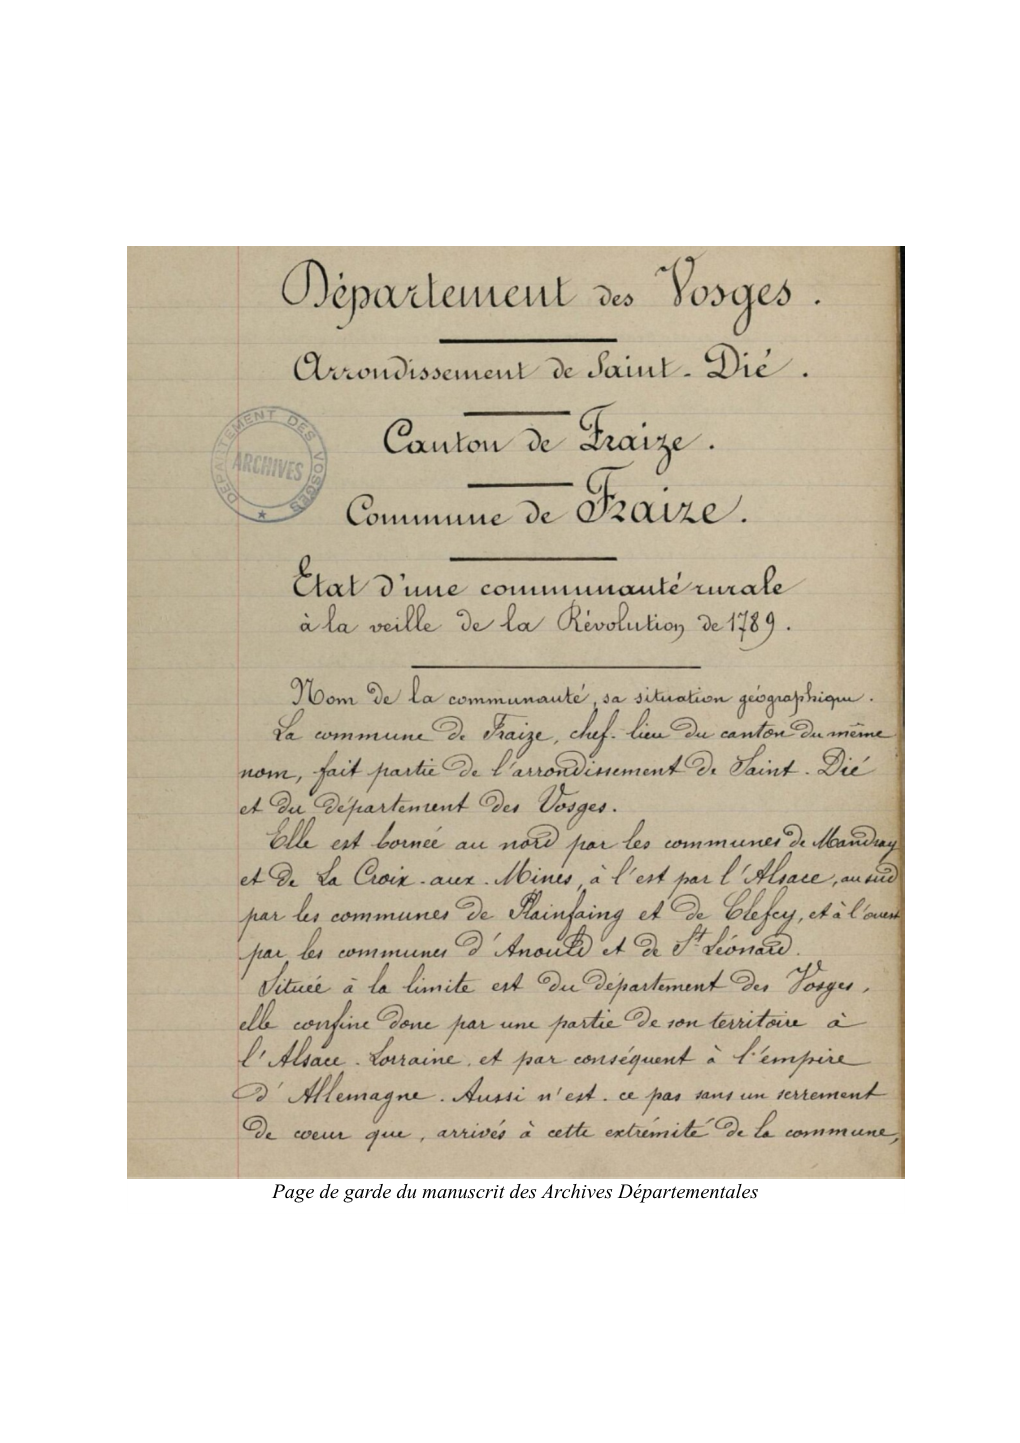 Département des Vosges.
Arrondissement de Saint-Dié.
Canton de Fraize.
DÉPARTEMENT DES VOSGES
ARCHIVES
Commune de Fraize.
Etat d'une communauté rurale
à la veille de la Révolution de 1789.
Nom de la communauté, sa situation géographique.
La commune de Fraize, chef-lieu du canton du même
nom, fait partie de l'arrondissement de Saint-Dié
et du département des Vosges.
Elle est bornée au nord par les communes de Mandray
et de La Croix-aux-Mines, à l'est par l'Alsace, au sud
par les communes de Plainfaing et de Clefcy, et à l'ouest
par les communes d'Anould et de St Léonard.
Située à la limite est du département des Vosges,
elle confine donc par une partie de son territoire à
l'Alsace-Lorraine, et par conséquent à l'empire
d'Allemagne. Aussi n'est-ce pas sans un serrement
de coeur que, arrivés à cette extrémité de la commune,
Page de garde du manuscrit des Archives Départementales